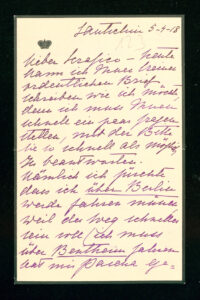 Lautschin 5-4-18
Lieber Serafico – heute
kann ich Ihnen keinen
ordentlichen Brief
schreiben wie ich möcht
denn ich muss Ihnen
schnell ein paar Fragen
stellen, mit der Bitte
sie so schnell als möglich
zu beantworten.
Nämlich ich fürchte
dass ich über Berlin
werde fahren müssen
weil der Weg schneller
sein soll / ich muss
über Bentheim fahren
hat mir Pascha ge=